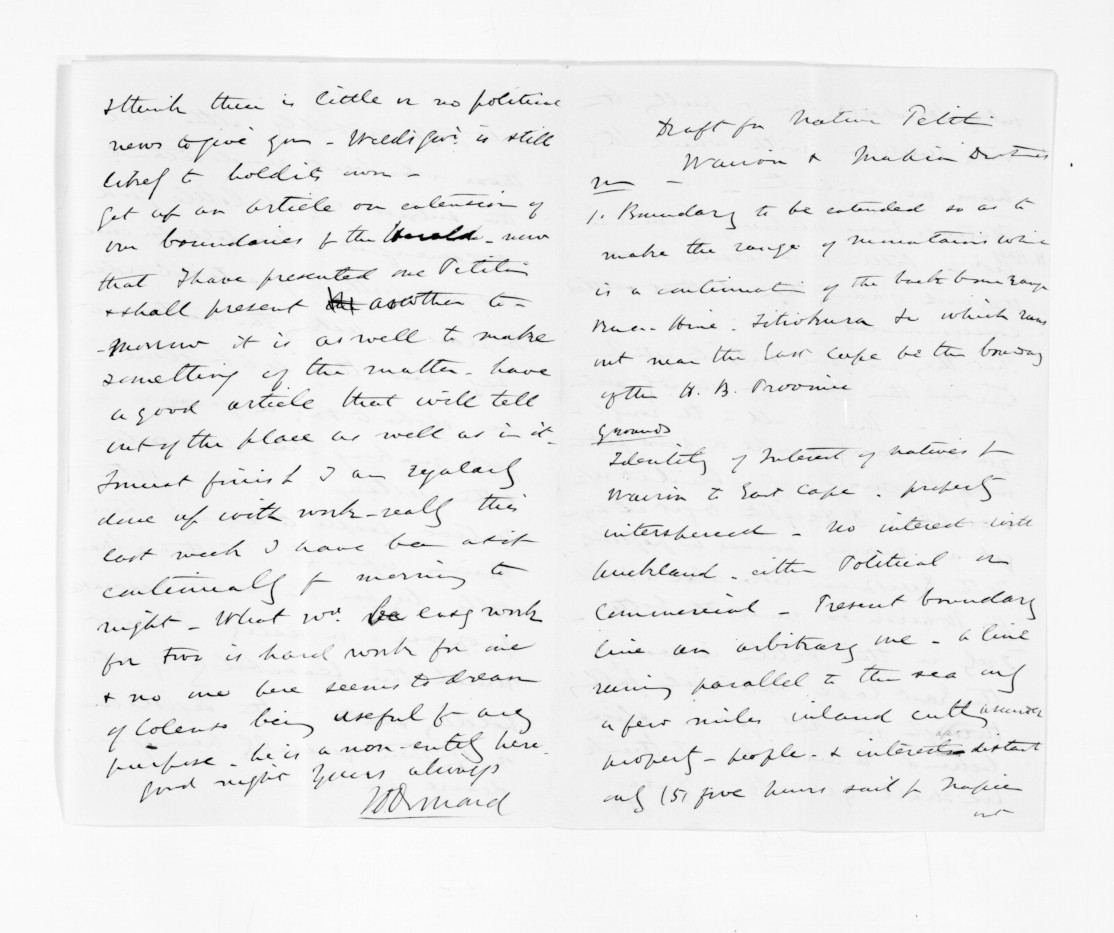 I think there is little or no political
news to give you - Weld's Govt. is still
likely to hold its own -
Get up an article on extension of
our boundaries f the Herald - now
that I have presented one Petition
& shall present another to-
-morrow it is as well to make
something of the matter - have
a good article that will tell
out of the place as well as in it.
I must finish I am regularly
done up with work - really this
last week I have been at it
continually f morning to
night - What wd. be easy work
for two is hard work for one
& no one here seems to dream
of Colenso being useful for any
purpose - he is a non-entity here.
Good night Yours always
JDOrmond
Draft for Native Petition
Wairoa & Mahia Districts
1. Boundary to be extended so as to
make the range of mountains which
is a continuation of the back bone range
Titiokura &c which runs
out near the East Cape be the boundary
of the H. B. Province
Grounds
Identity of Interest of natives f
Wairoa to East Cape. property
interspersed - No interest with
Auckland - either Political or
Commercial - Present boundary
line an arbitrary one - a line
running parallel to the sea only
a few miles inland cutting asunder
property - people - & interests - distant
only (5) five hours sail f Napier